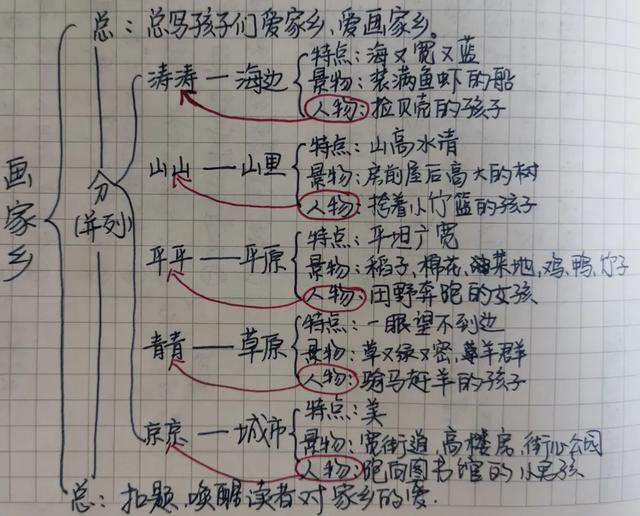 总：总写孩子们爱家乡、爱画家乡。
画家乡
分
(并列)
涛涛—海边
特点：海又宽又蓝
景物：装满鱼虾的船
人物：捡贝壳的孩子
山山—山里
特点：山高水清
景物：房前屋后高大的树
人物：挎着小竹篮的孩子
平平—平原
特点：平坦广宽
景物：稻子，棉花，油菜地，鸡，鸭，竹子
人物：田野奔跑的女孩
青青—草原
特点：一眼望不到边
景物：草又绿又密，羊群
人物：骑马赶羊的孩子
京京—城市
特点：美
景物：宽街道，高楼房，街心公园
人物：跑向图书馆的小男孩
总：扣题，唤醒读者对家乡的爱.